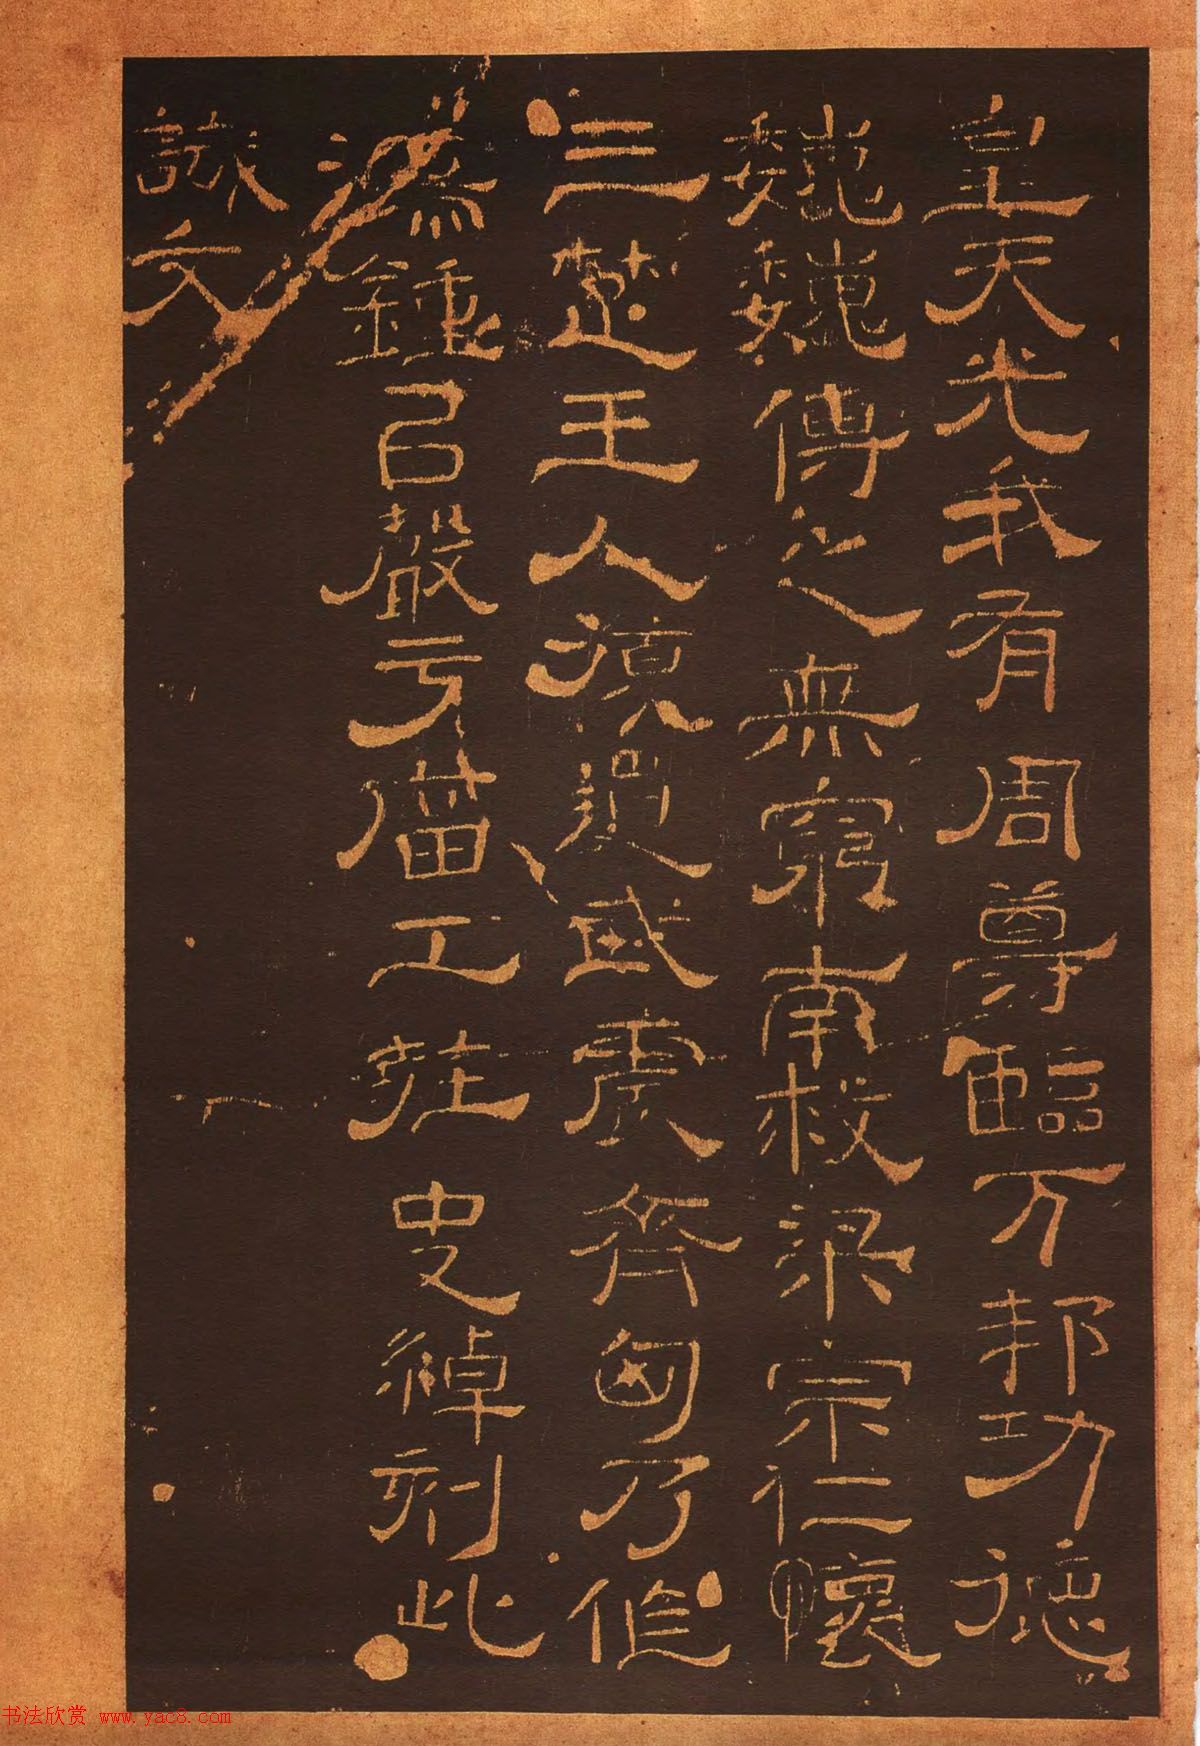 皇天光我有周尊臨万邦功德
巍巍傳之無窮南救梁宗仁懷
三楚王人遄武震齊旬乃作
鴻鍾召嚴亏工在史綽刻此
誠文
书法欣赏 www.yac8.com